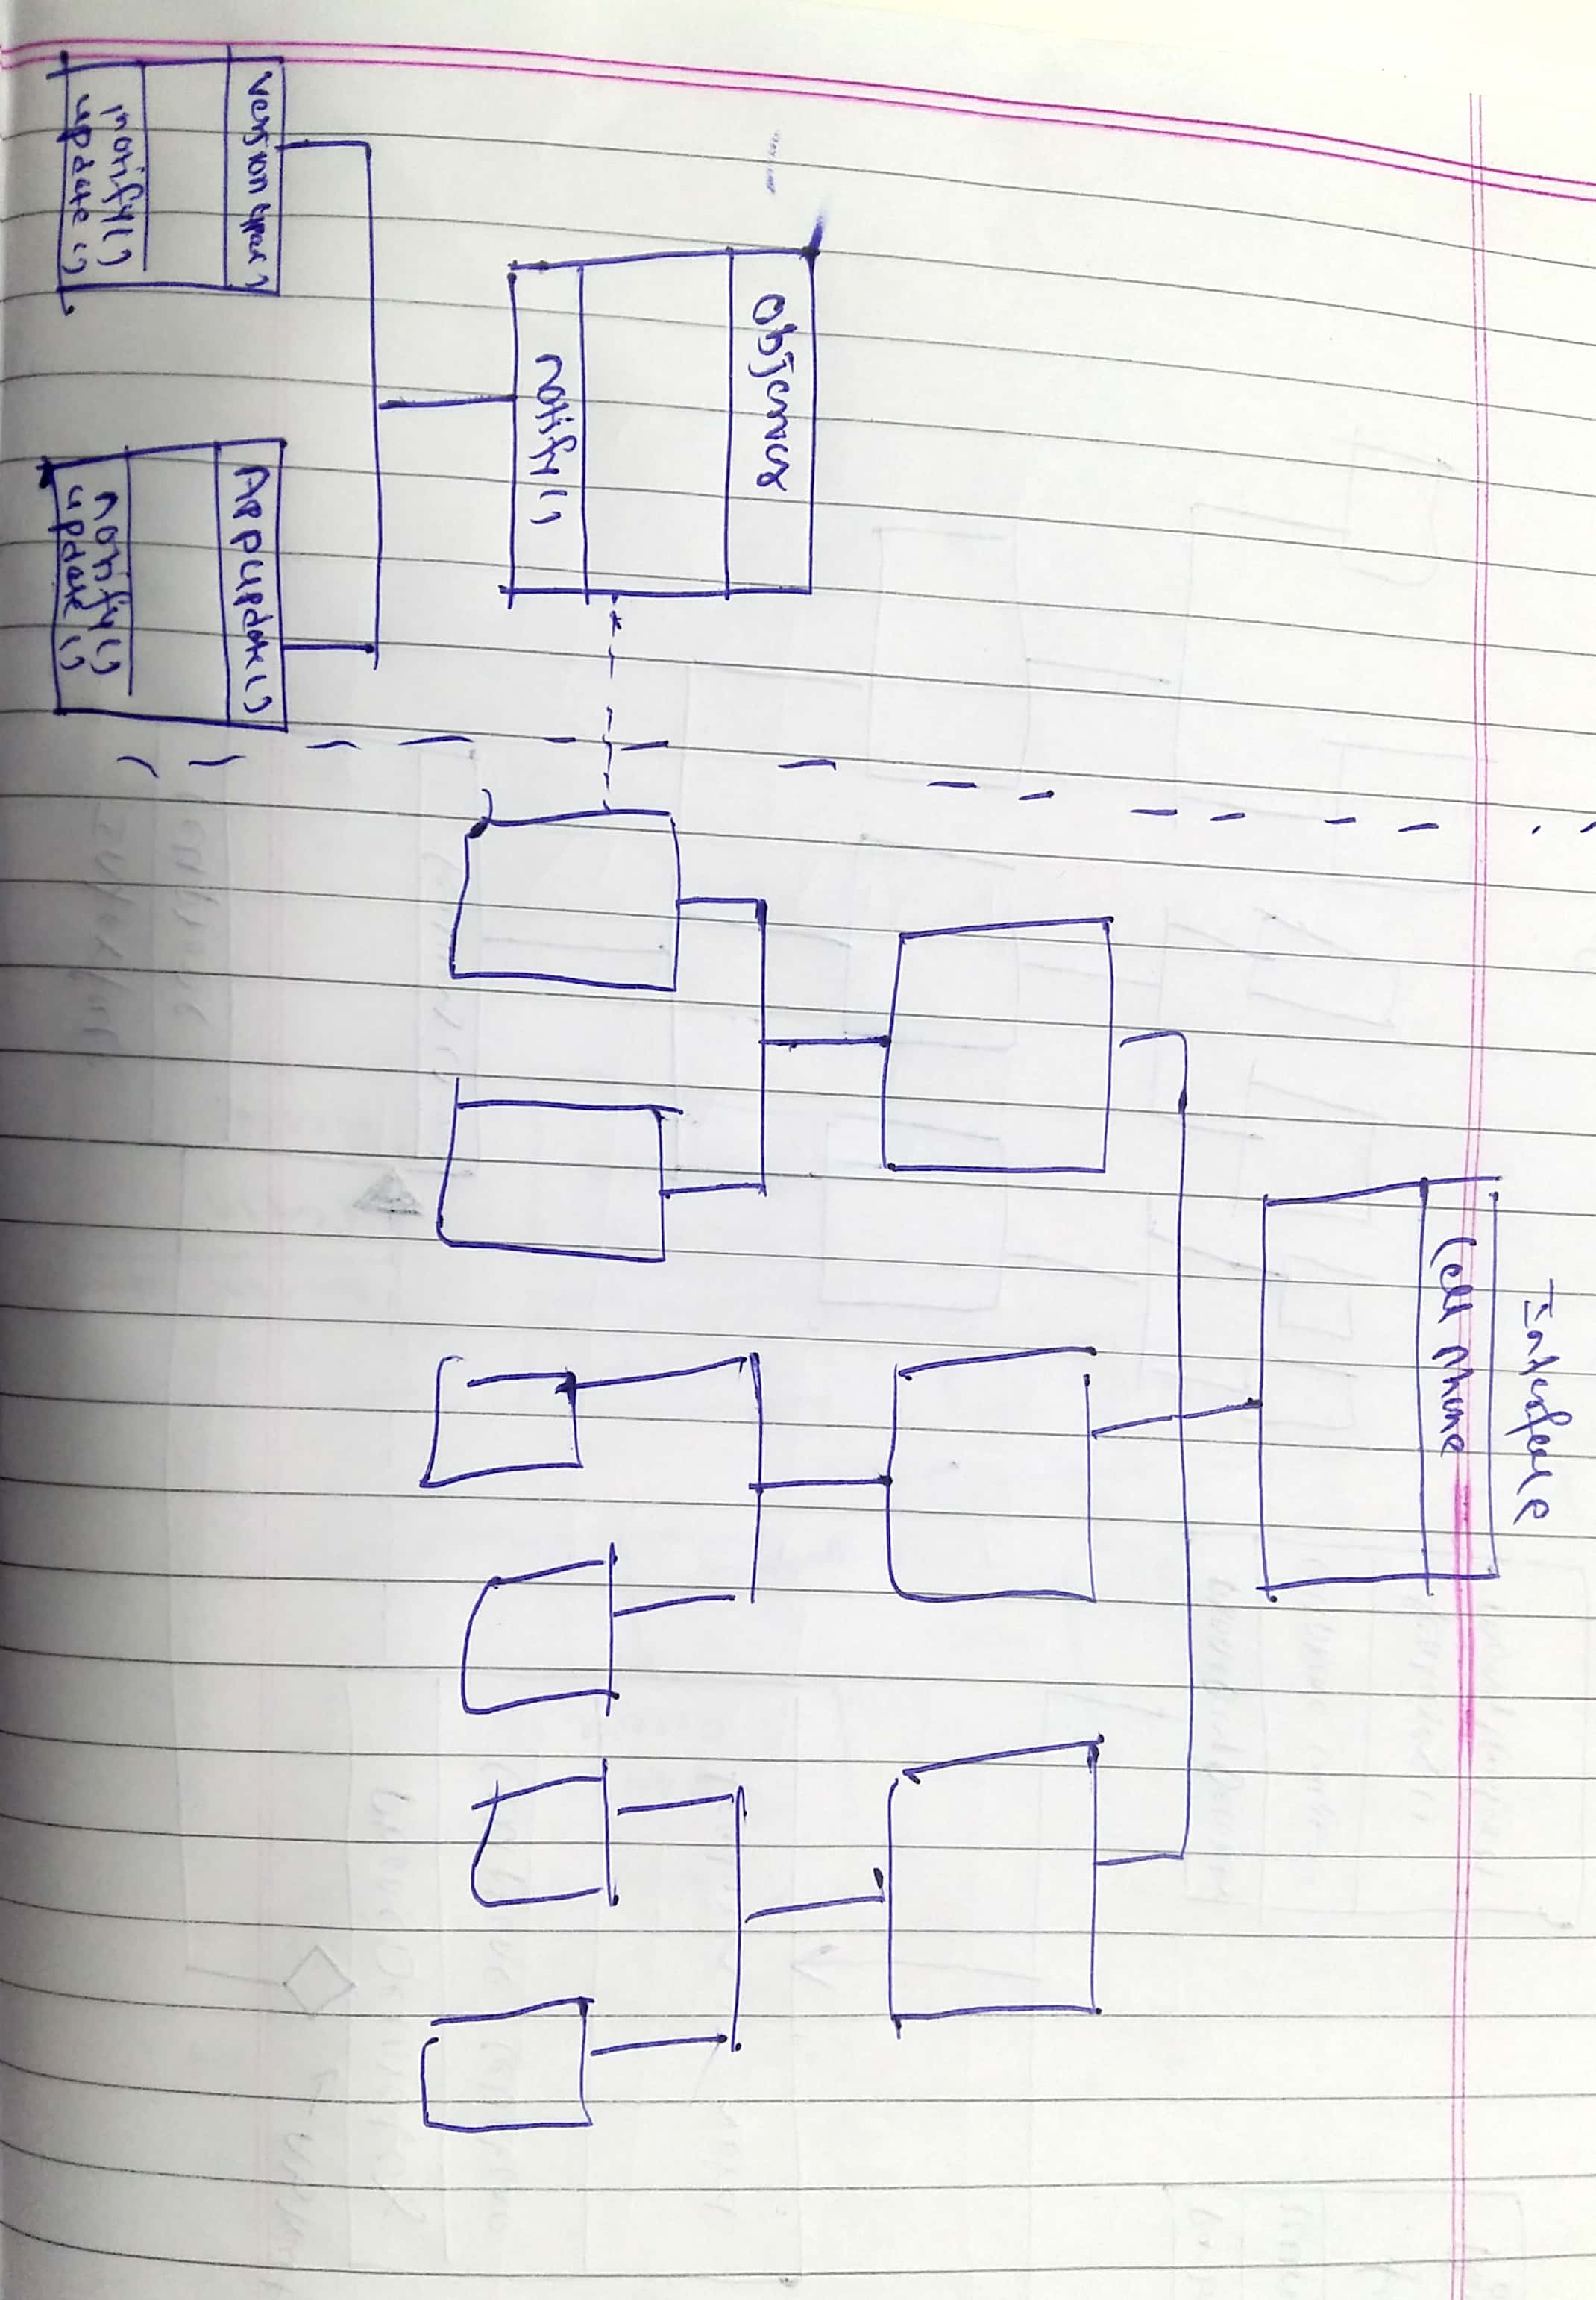 Interface
Cell Phone
Observer
notify()
version upd()
notify()
update()
App update()
notify()
update()